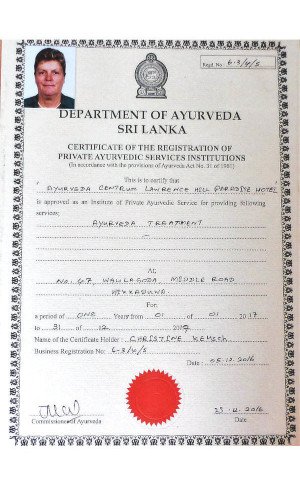 Regd. No 6-3/4/5
DEPARTMENT OF AYURVEDA
SRI LANKA
CERTIFICATE OF THE REGISTRATION OF
PRIVATE AYURVEDIC SERVICES INSTITUTIONS
(In accordance with the provisions of Ayurveda Act No. 31 of 1961)
This is to certify that
AYURVEDA CENTRUM LAWRENCE HILL PARADISE HOTEL
is approved as an Institute of Private Ayurvedic Service for providing following
services;
AYURVEDA TREATMENT
At
NO. 47, WAULAGODA, MIDDLE ROAD
HIKKADUWA.
For,
a period of ONE Years from 01 of 01 2017
to 31 of 12 2017
Name of the Certificate Holder : CHRISTINE
Business Registration No: 6-3/4/5
Date : 25.12.2016
Commissioner of Ayurveda
Date.